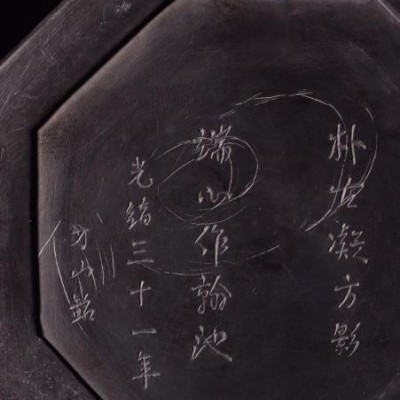 朴古凝方影
端心作翰池
光緒三十一年
山銘